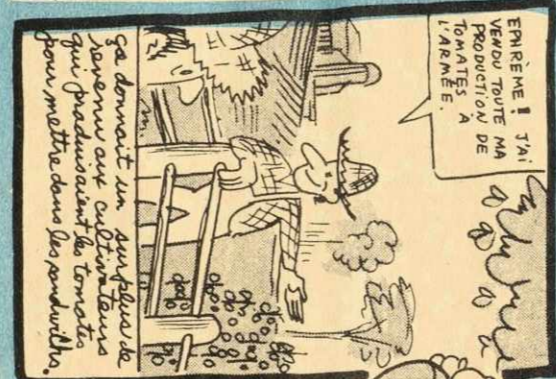 EPHREME! J'AI
VENDU TOUTE MA
PRODUCTION DE
TOMATES À
L'ARMÉE.
ça donnait un surplus de
revenu aux cultivateurs
qui produisaient les tomates
pour mettre dans les sandwichs.